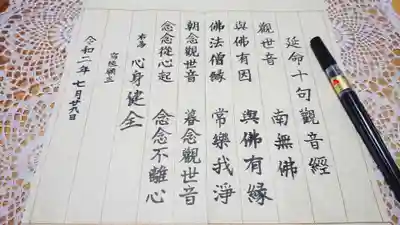 延命十句觀音經
觀世音　南無佛
與佛有因　與佛有緣
佛法僧緣　常樂我淨
朝念觀世音　暮念觀世音
念念從心起　念念不離心
心身健全
令和二年　七月廿九日